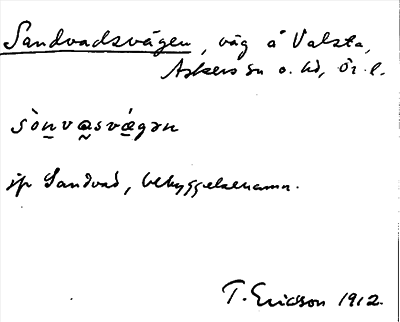 Sandvadsvägen, väg å Valsta,
Askers sn o. hd, Ör. l.
sònvasvägən
jfr Sandvad, bebyggelsenamn.
T. Ericson 1912.